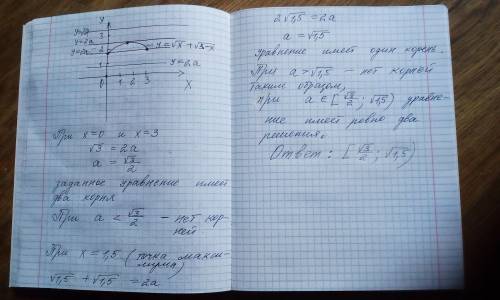 y
y=2a
3
y=2a
2
y=√x+√3-x
y=2a
1
y=2a
0 1 2 3
x
При x=0 и x=3
√3 = 2a
a = √3/2
заданное уравнение имеет
два корня
При a < √3/2 - нет кор-
ней
При x = 1,5 (точка макси-
мума)
√1,5 + √1,5 = 2a
2√1,5 = 2a
a = √1,5
Уравнение имеет один корень.
При a > √1,5 - нет корней
Таким образом,
при a ∈ [√3/2; √1,5) уравне-
ние имеет ровно два
решения.
Ответ: [√3/2; √1,5)